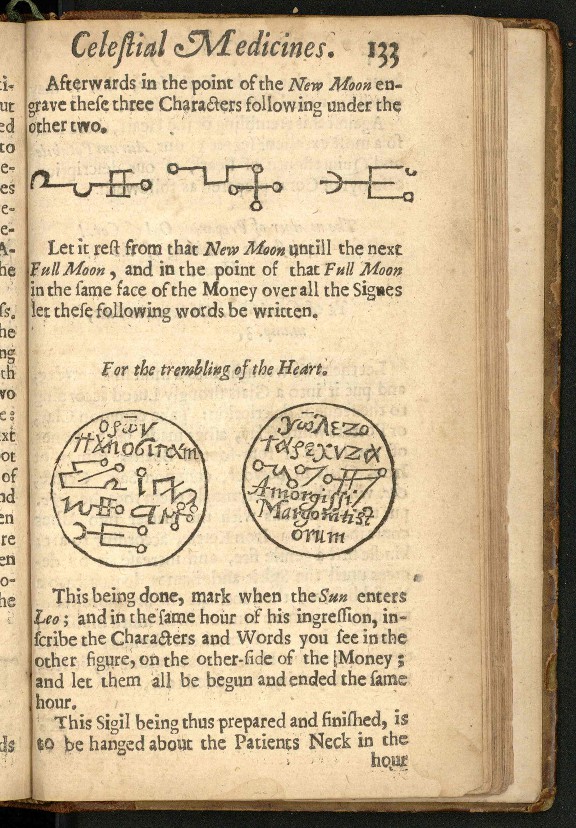 Celeſtial Medicines. 133
Afterwards in the point of the New Moon en-
grave theſe three Characters following under the
other two.
Let it reſt from that New Moon untill the next
Full Moon, and in the point of that Full Moon
in the ſame face of the Money over all the Signes
let theſe following words be written.
For the trembling of the Heart.
Amorgiſti
Margoratiſt
orum
This being done, mark when the Sun enters
Leo; and in the ſame hour of his ingreſſion, in-
ſcribe the Characters and Words you ſee in the
other figure, on the other-ſide of the Money;
and let them all be begun and ended the ſame
hour.
This Sigil being thus prepared and finiſhed, is
to be hanged about the Patients Neck in the
hour